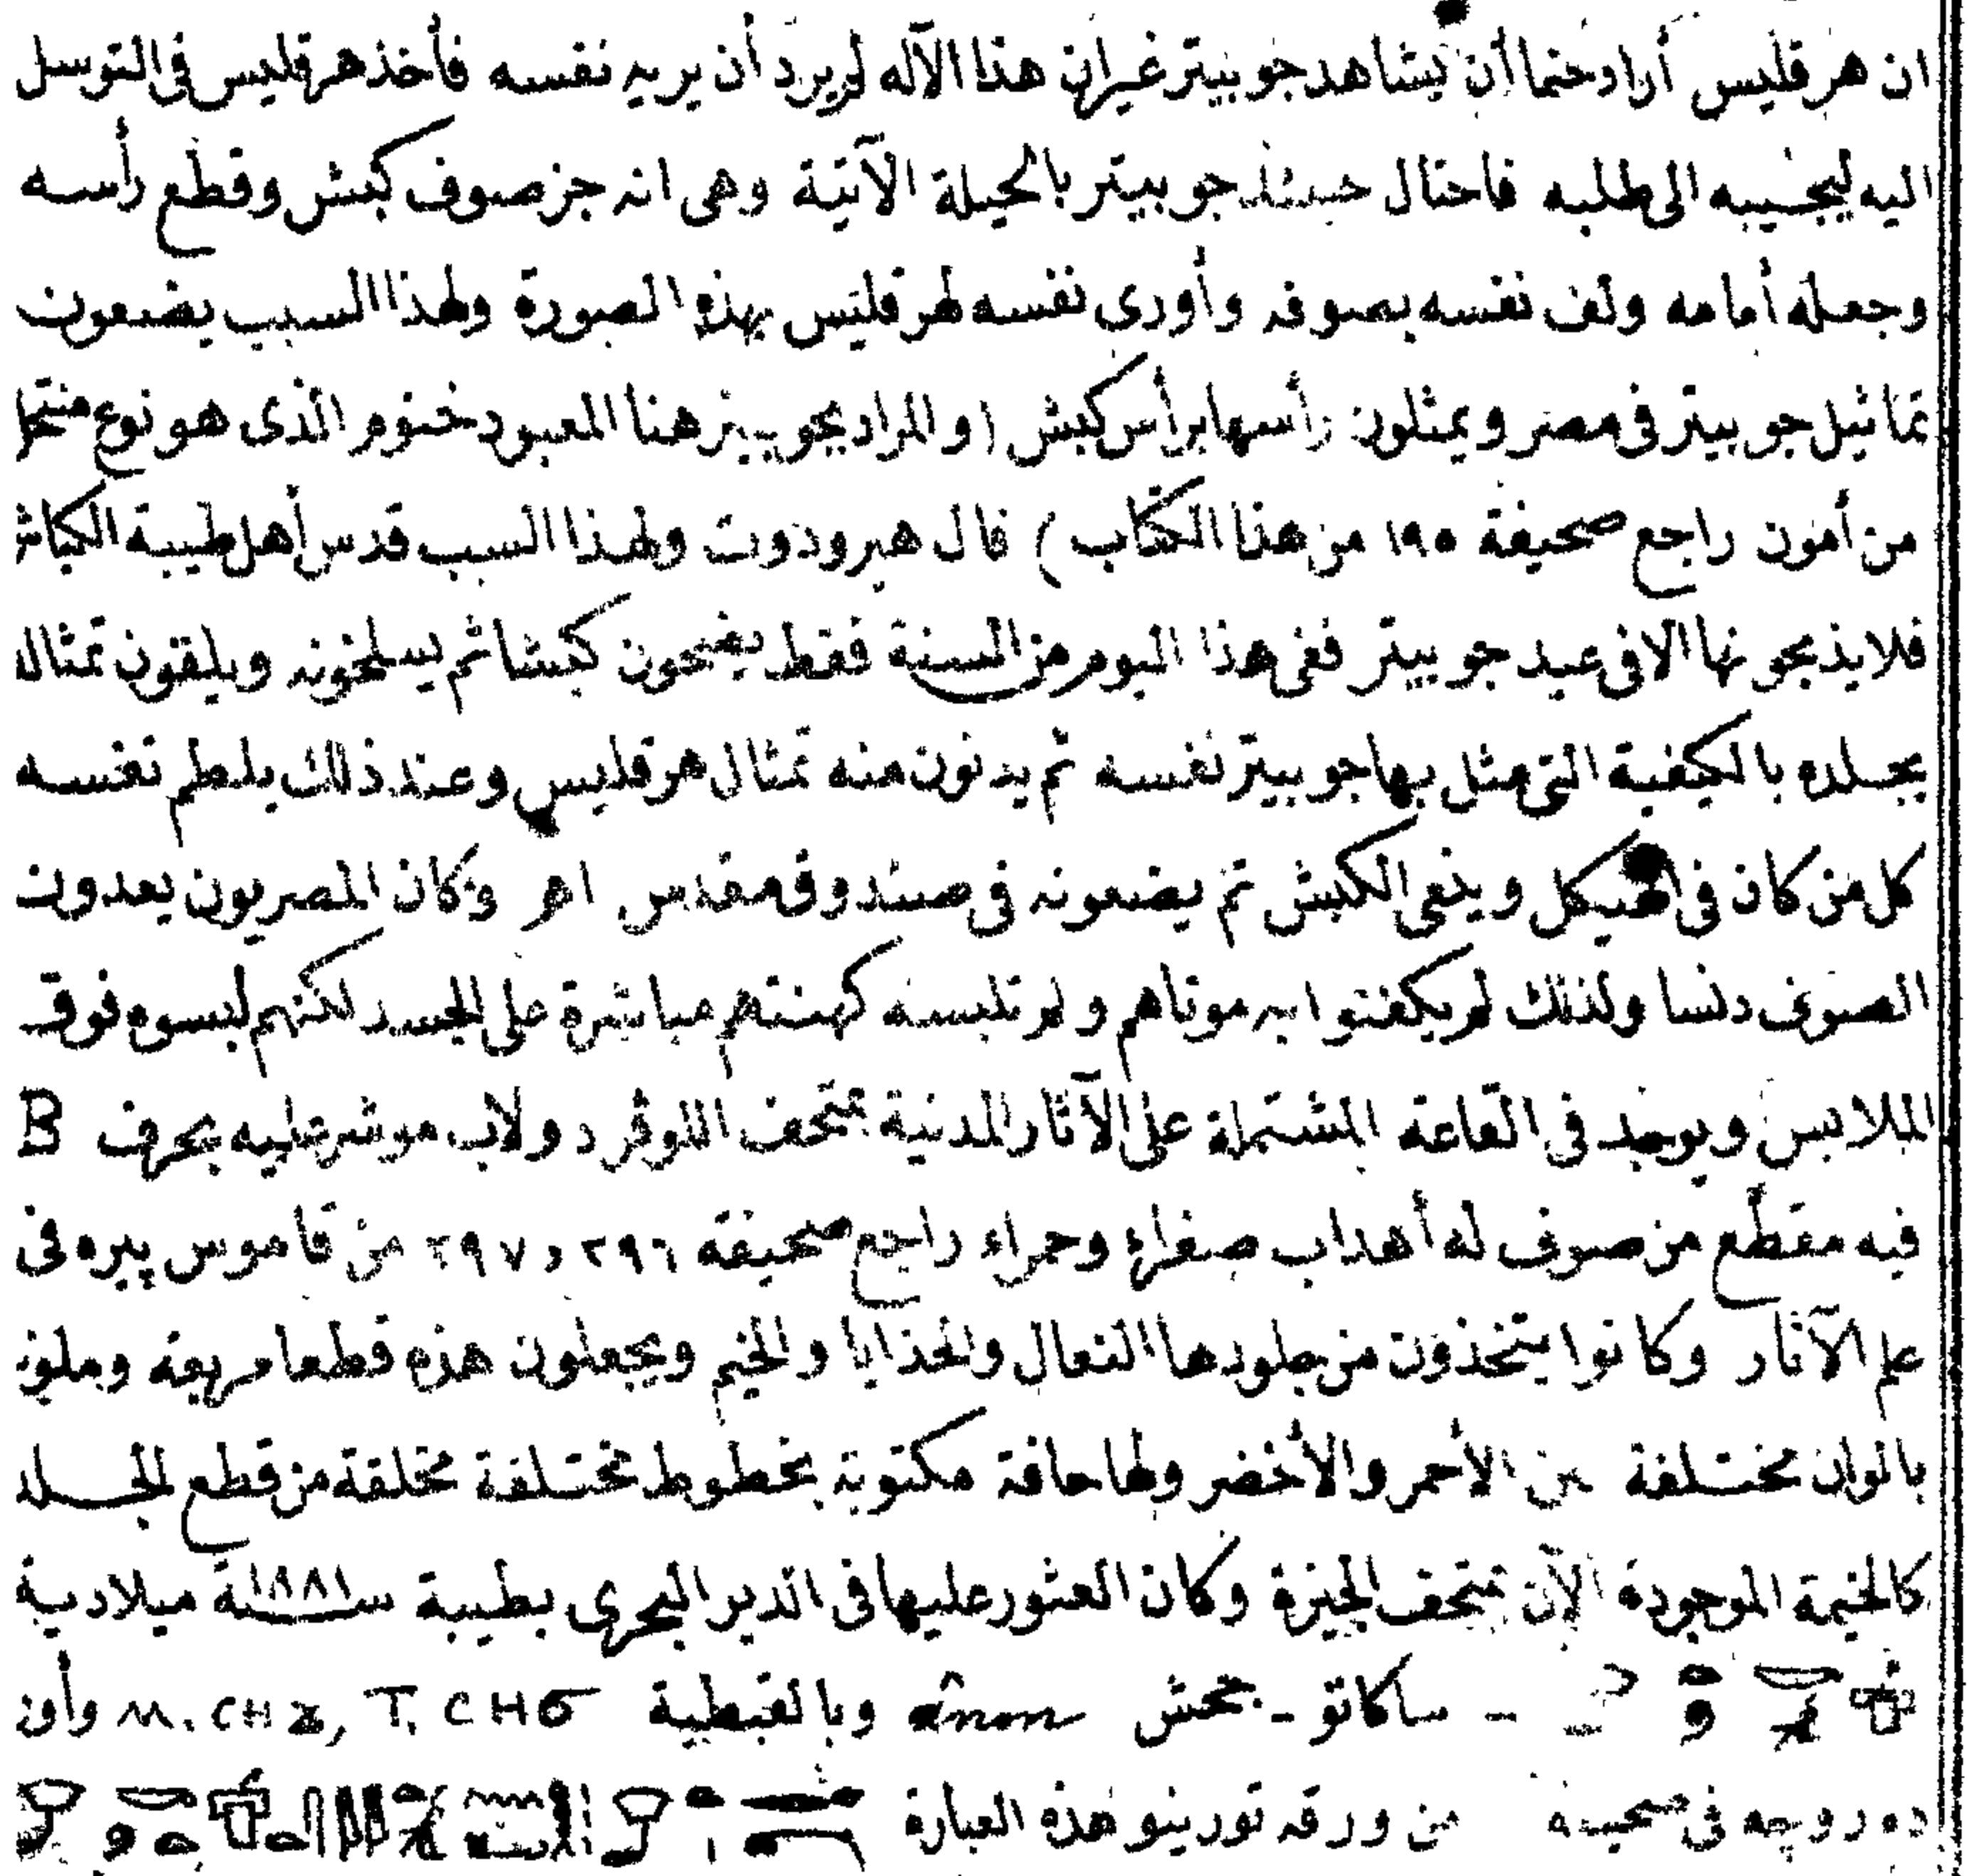 ان هرقليس أراد حتما أن يشاهد جوبيتر غير ان هذا الآله لم يرد أن يريه نفسه فأخذ هرقليس فى التوسل
اليه ليجيبه الى طلبه فاحتال حينئذ جوبيتر بالحيلة الآتية وهى انه جز صوف كبش وقطع رأسه
وجعله أمامه ولف نفسه بصوفه وأورى نفسه لهرقليس بهذه الصورة ولهذا السبب يضعون
تماثيل جوبيتر فى مصر ويمثلون رأسها برأس كبش (والمراد بجوبيتر هنا المعبود خنوم الذى هو نوع
من أمون راجع صحيفة ١٩٥ من هذا الكتاب) قال هيرودوت ولهذا السبب قدس أهل طيبة الكباش
فلا يذبحونها الا فى عيد جوبيتر ففى هذا اليوم من السنة فقط يضحون كبشا ثم يسلخونه ويلقون تمثال
بجلده بالكيفية التى مثل بها جوبيتر نفسه ثم يدنون منه تمثال هرقليس وعند ذلك يلطم نفسه
كل من كان فى الهيكل وينعى الكبش ثم يضعونه فى صندوق مقدس اهـ وكان المصريون يعدون
الصوف دنسا ولذلك لم يكفنوا به موتاهم ولم تلبسه كهنتهم مباشرة على الجسد لكنهم لبسوه فوق
الملابس ويوجد فى القاعة المشتملة على الآثار المدنية بمتحف اللوفر دولاب موشر عليه بحرف B
فيه مقطع من صوف له أهداب صفراء وحمراء راجع صحيفة ٢٩٦ و ٢٩٧ من قاموس پيره فى
علم الآثار وكانوا يتخذون من جلودها النعال والحذايا والخيم ويجعلون هذه قطعا مربعة وملونة
بالوان مختلفة بين الأحمر والأخضر ولها حافة مكتوبة بخطوط مختلفة مخلقة من قطع الجلد
كالخيمة الموجودة الآن بمتحف الجيزة وكان العثور عليها فى الدير البحرى بطيبة سنة ١٨٨١ ميلادية
- ساكاتو - جحش ânon وبالقبطية M. CHZ, T. CHϬ
ده روچه فى صحيفة من ورقه تورينو هذه العبارة